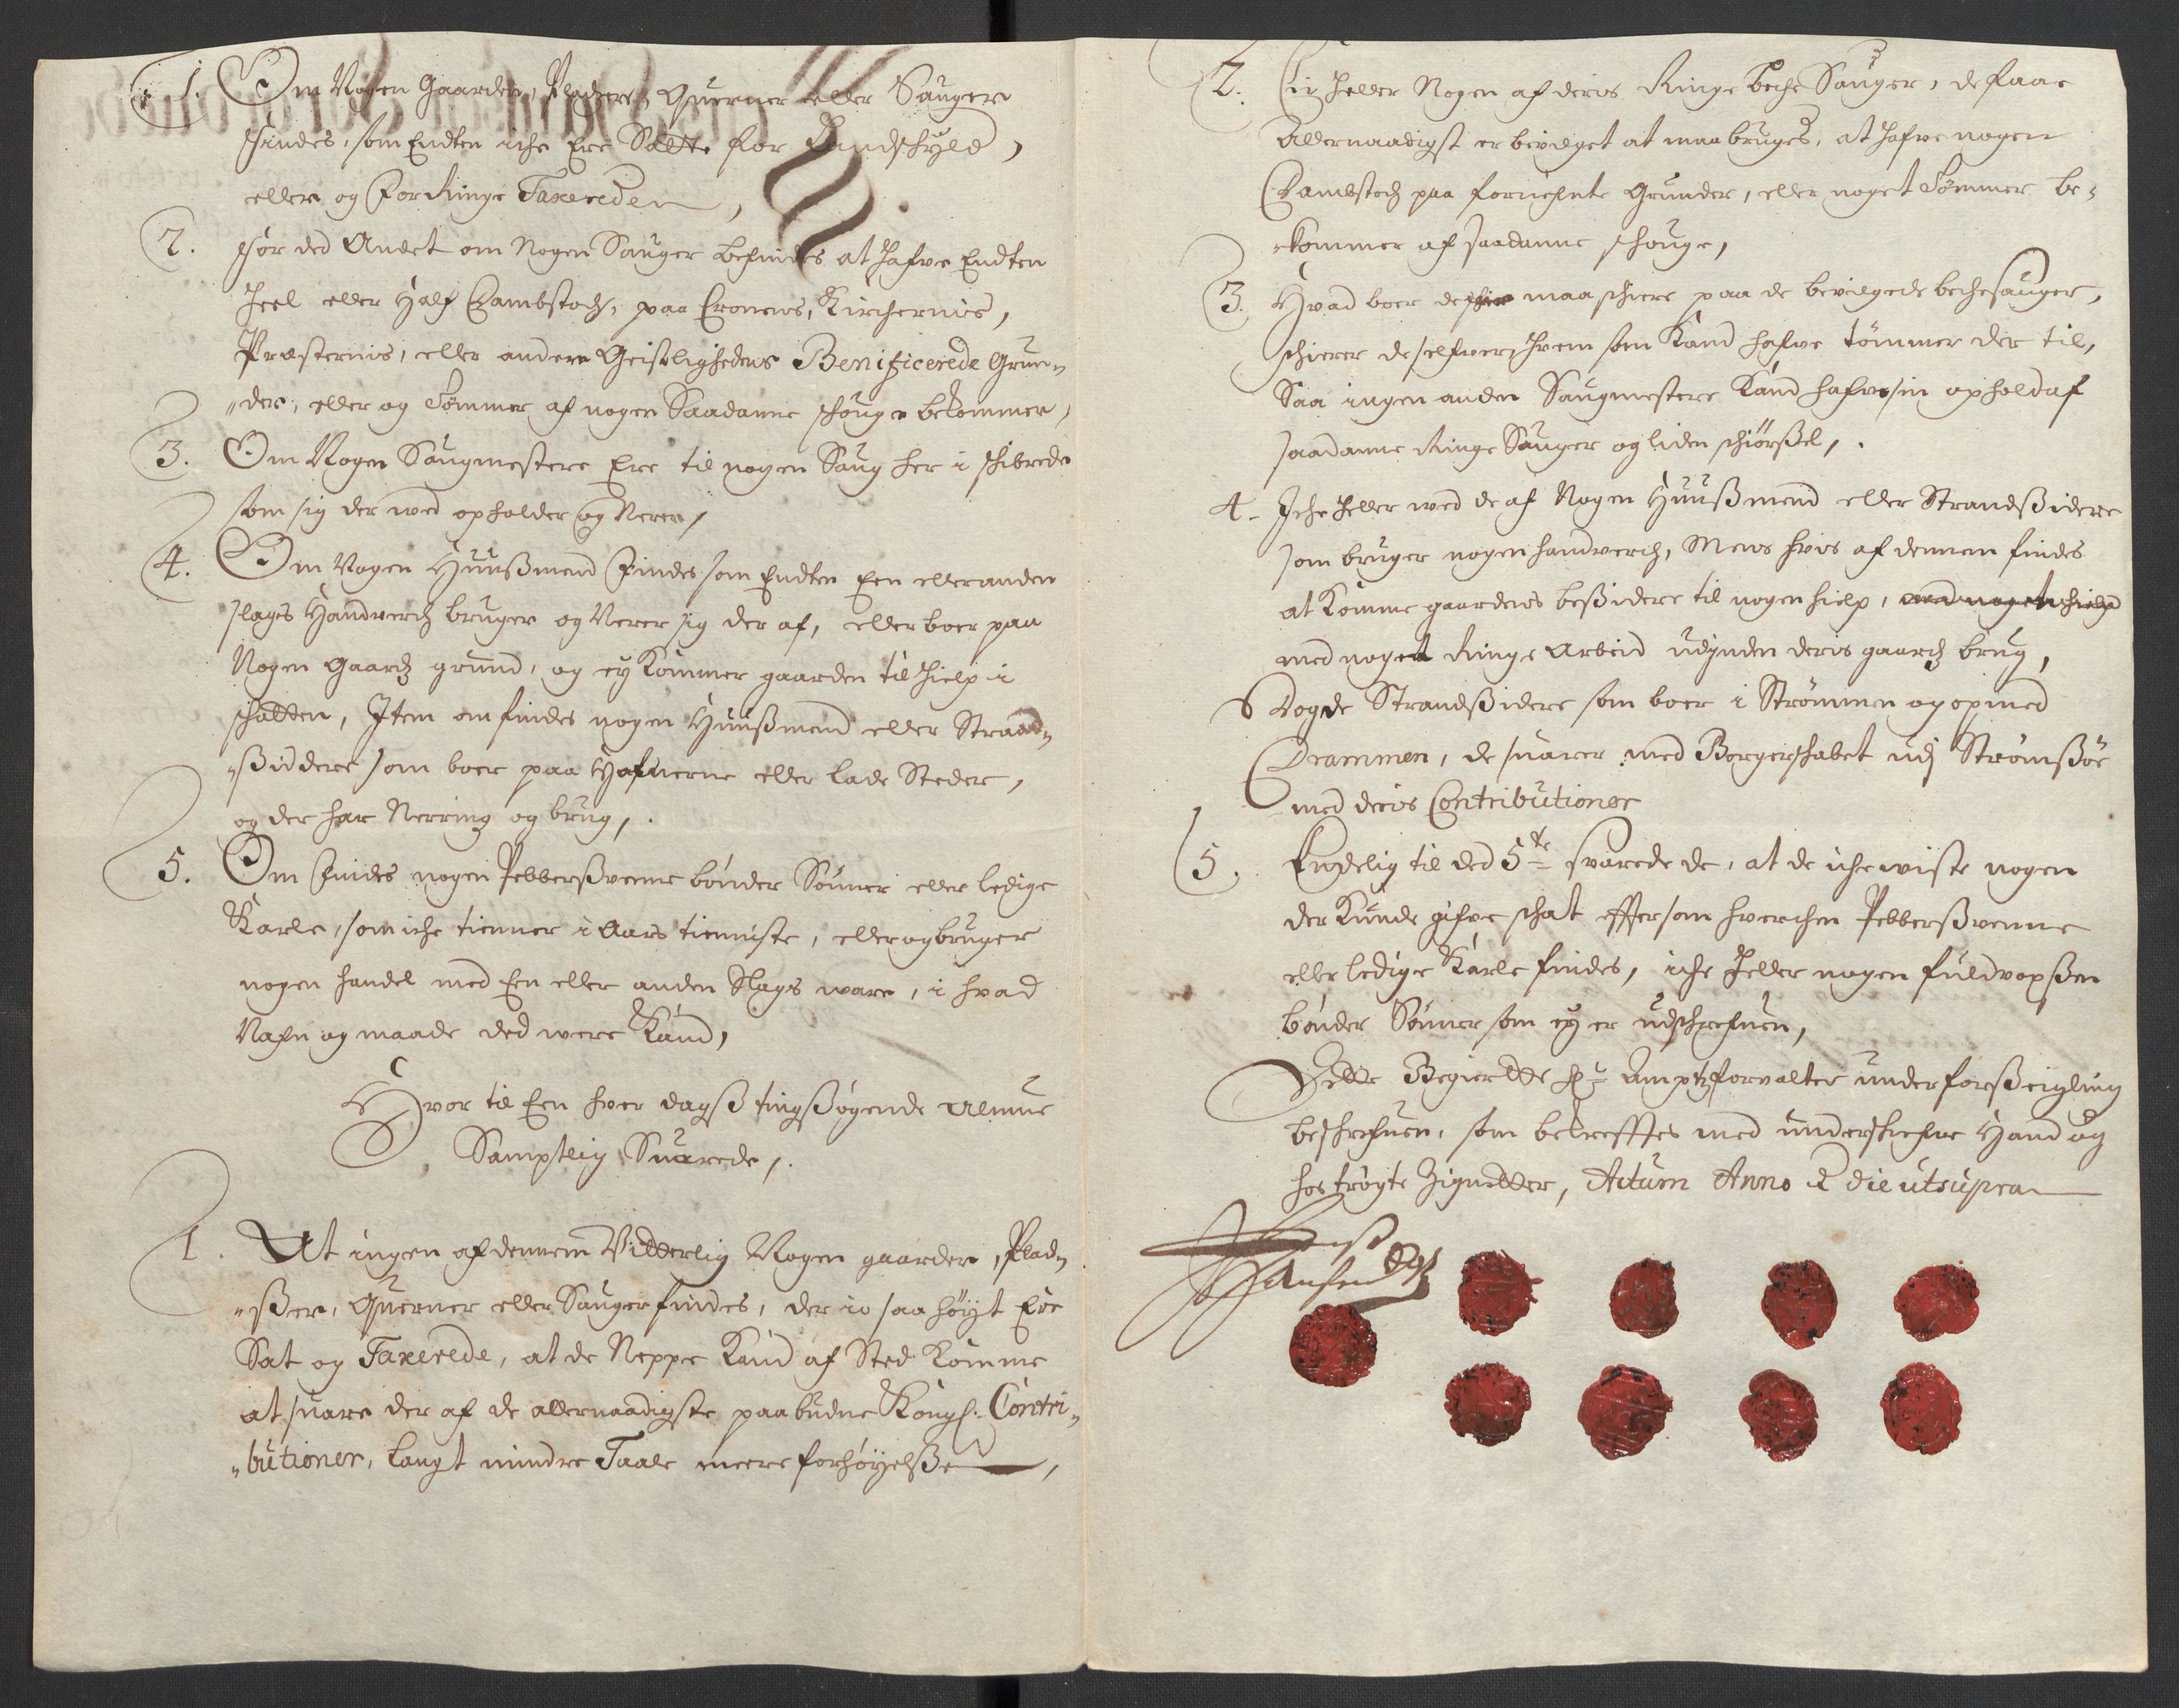 1. Om Nogen Gaarder, Pladzer, Querner eller Sauger
findes, som Endten iche Ere Satte for Landschyld,
eller og For Ringe Taxereder,
2. For ded Andet om Nogen Sauger befindes at hafve Endten
heel eller Half Dambstoch, paa Cronens, Kirchernis,
Præsternis, eller andere Geistlighedens Benificerede Grun¬
der, eller og Tømmer af nogen Saadanne schouge bekommer,
3. Om Nogen Saugmestere Ere til nogen Saug her i schibrede
som sig der med opholder og Nerer,
4. Om Nogen Huußmend Findes som Endten Een eller anden
slags Handverch bruger og Nerer sig der af, eller boer paa
Nogen Gaardz grund, og ey Kommer gaarden til hielp i
schatten, Item om findes nogen Huußmend eller Strand¬
ßiddere som boer paa Hafnerne eller lade Steder,
og der har Nerring og brug,
5. Om Findes nogen Pebberßvenne bønder Sønner eller ledige
Karle, som iche tienner i Aars tienniste, eller og bruger
nogen handel med Een eller anden Slags ware, i hvad
Nafn og maade ded were Kand,
Hvor til Een hver dagß tingßøgende Almue
Samptlig Suarede,
1. At ingen af dennem Vitterlig Nogen gaarder, Plad¬
ßer, Querner eller Sauger findes, der io saa høyt Ere
Sat og Taxerede, at de Neppe Kand af Sted Komme
at suare der af de allernaadigste paabudne Kongl: Contri¬
butioner, langt mindre Taale meere forhøyelße,
2. Ey heller Nogen af deris Ringe beche Sauger, de faae
Allernaadigst er bevilget at maa bruges, at hafve nogen
Dambstoch paa fornefnte Grunder, eller noget Tømmer be¬
kommer af saadanne schouge,
3. Hvad boer de maa schiere paa de bevilgede bechesauger,
schierer de selfver hvem som Kand hafve tømmer der til,
Saa ingen anden Saugmestere Kand hafve sin ophold af
saadanne Ringe Sauger og liden schiørßel,
4. Iche heller wed de af Nogen Huußmend eller Strandßidere
som bruger nogen handverch, Mens hvis af dennem findes
at Komme gaardens beßidere til nogen hielp, med noget hielp
med noget Ringe Arbeid udjnden deris gaardz brug,
Dog de Strandßidere som boer i Strømmen og op med
Drammen, de suarer med Borgerschabet udj Strømßøe
med deris Contributioner
5. Endelig til ded 5te svarede de, at de iche wiste nogen
der Kunde gifve schat effter som hverchen Pebberßvenne
eller ledige Karle findes, iche heller nogen fuldvoxßen
bønder Sønner som ey er udschrefuen,
Dette Begierte Hr Amptzforvalter under forßeigling
beschrefuen, som bekrefftes med underschrefne Hand og
hos trøgte Zignetter, Actum Anno & die utsupra
Hansen